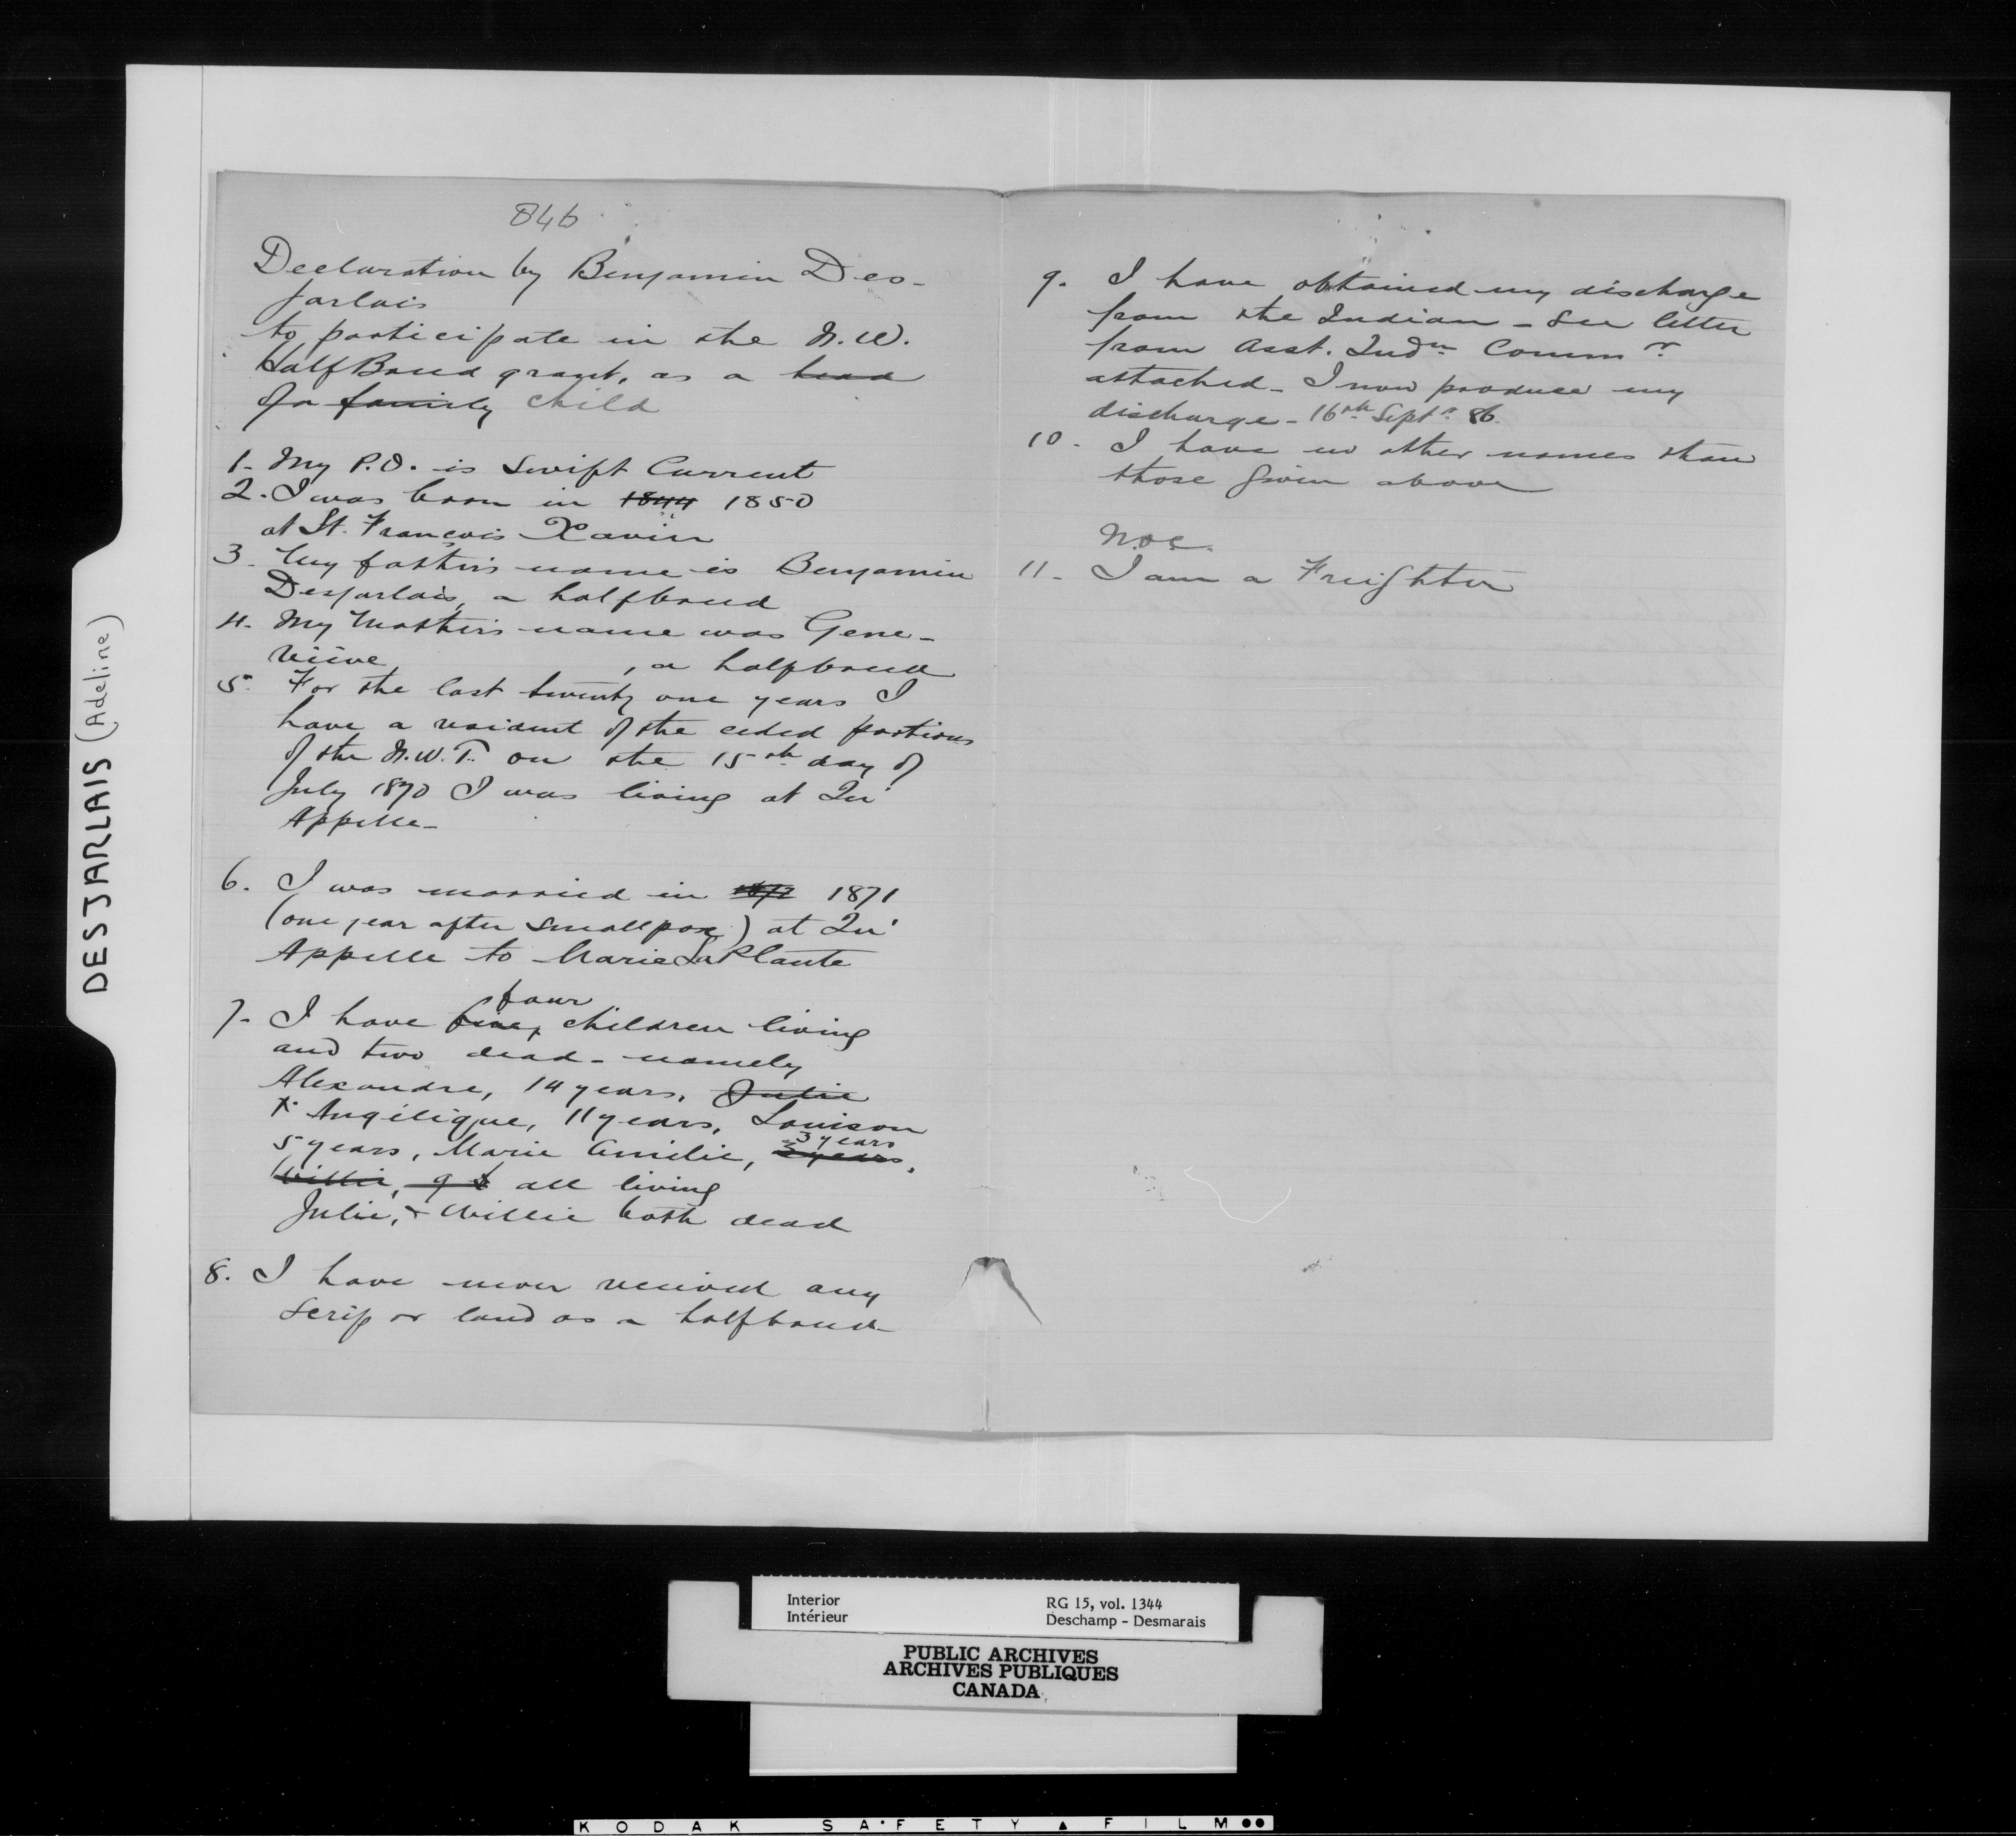 DESJARLAIS (Adeline)
846
Declaration by Benjamin Des-
jarlais
to participate in the N.W.
HalfBreed grant, as a head
of a family child
1- My P.O. is Swift Current
2. I was born in 1844 1850
at St. François Xavier
3. My father's name is Benjamin
Desjarlais, a halfbreed
4. My Mother's name was Gene-
viève , a halfbreed
5. For the last twenty one years I
have a resident of the ceded portions
of the N.W.T. on the 15th day of
July 1870 I was living at Qu'
Appelle-
6. I was married in 1872 1871
(one year after smallpox) at Qu'
Appelle to Marie LaPlante
four
7- I have five, children living
and two dead - namely
Alexandre, 14 years, Julie
Angélique, 11 years, Louison
3 years
5 years, Marie Amilie, 3 years,
Willie, 9 all living
Julie, & Willie both dead
8. I have never received any
scrip or land as a halfbreed-
9. I have obtained my discharge
from the Indian - See letter
from Asst. Indn Commr
attached - I now produce my
discharge - 16th Septr 86.
10- I have no other names than
those given above
11- I am a Freighter
Interior RG 15, vol. 1344
Intérieur Deschamp - Desmarais
PUBLIC ARCHIVES
ARCHIVES PUBLIQUES
CANADA
KODAK SAFETY FILM